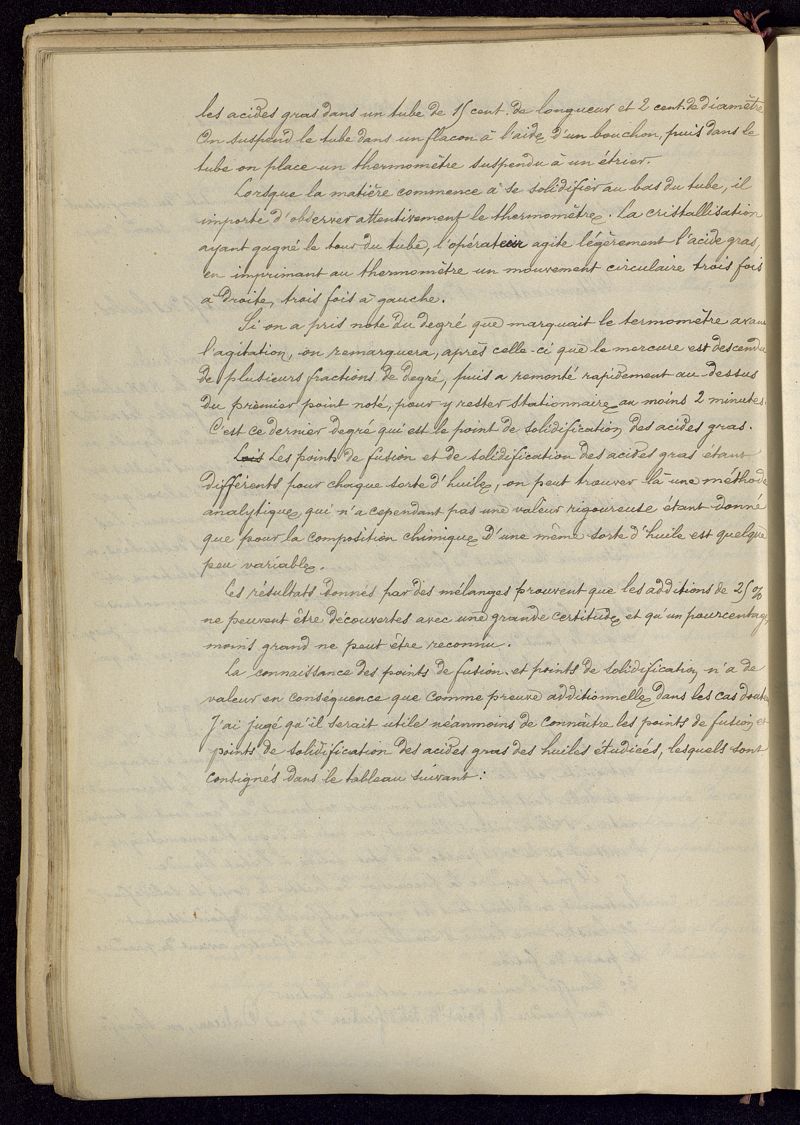 les acides gras dans un tube de 15 cent. de longueur et 2 cent. de diamètre
On suspend le tube dans un flacon à l'aide d'un bouchon, puis dans le
tube on place un thermomètre suspendu à un étrier.
Lorsque la matière commence à se solidifier au bas du tube, il
importe d'observer attentivement le thermomètre. La cristallisation
ayant gagné le tour du tube, l'opérateur agite légèrement l'acide gras,
en imprimant au thermomètre un mouvement circulaire trois fois
à droite, trois fois à gauche.
Si on a pris note du degré que marquait le termomètre avant
l'agitation, on remarquera, après celle-ci que le mercure est descendu
de plusieurs fractions de degré, puis a remonté rapidement au-dessus
du premier point noté, pour y rester stationnaire au moins 2 minutes.
C'est ce dernier degré qui est le point de solidification des acides gras.
Lois Les points de fusion et de solidification des acides gras étant
différents pour chaque sorte d'huile, on peut trouver là une méthode
analytique, qui n'a cependant pas une valeur rigoureuse étant donné
que pour la composition chimique d'une même sorte d'huile est quelque
peu variable.
Les résultats donnés par des mélanges prouvent que les additions de 25 %
ne peuvent être découvertes avec une grande certitude et qu'un pourcentage
moins grand ne peut être reconnu.
La connaissance des points de fusion et points de solidification n'a de
valeur en conséquence que comme preuve additionnelle dans les cas douteux
J'ai jugé qu'il serait utile néanmoins de connaître les points de fusion et
points de solidification des acides gras des huiles étudiées, lesquels sont
consignés dans le tableau suivant :